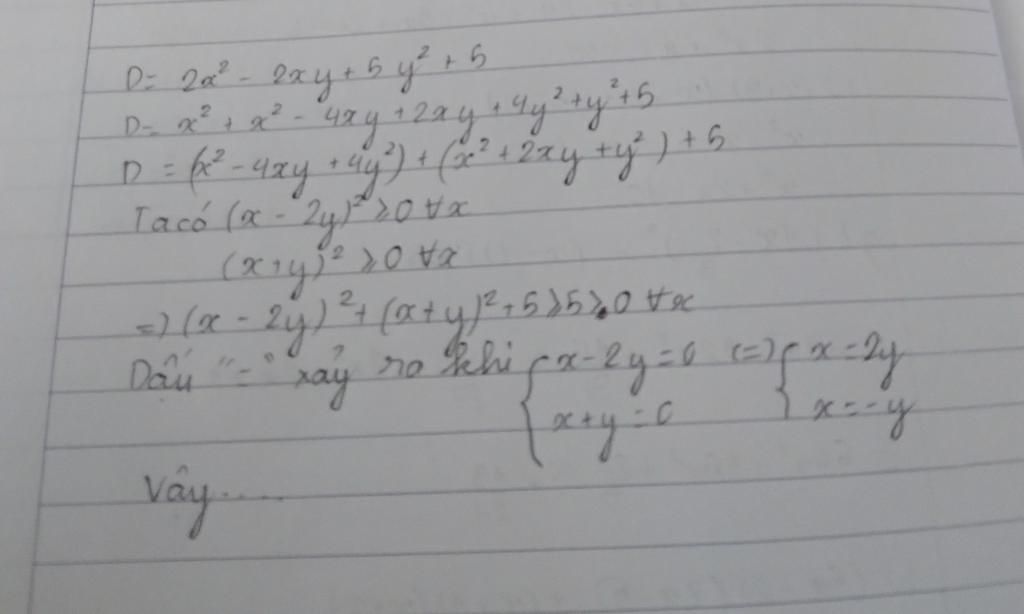 D = 2x² - 2xy + 5y² + 5
D = x² + x² - 4xy + 2xy + 4y² + y² + 5
D = (x² - 4xy + 4y²) + (x² + 2xy + y²) + 5
Ta có (x - 2y)² ≥ 0 ∀x
(x + y)² ≥ 0 ∀x
=) (x - 2y)² + (x + y)² + 5 ≥ 5 ≥ 0 ∀x
Dấu "=" xảy ra khi { x - 2y = 0 (=) { x = 2y
x + y = 0 x = -y
Vậy.....